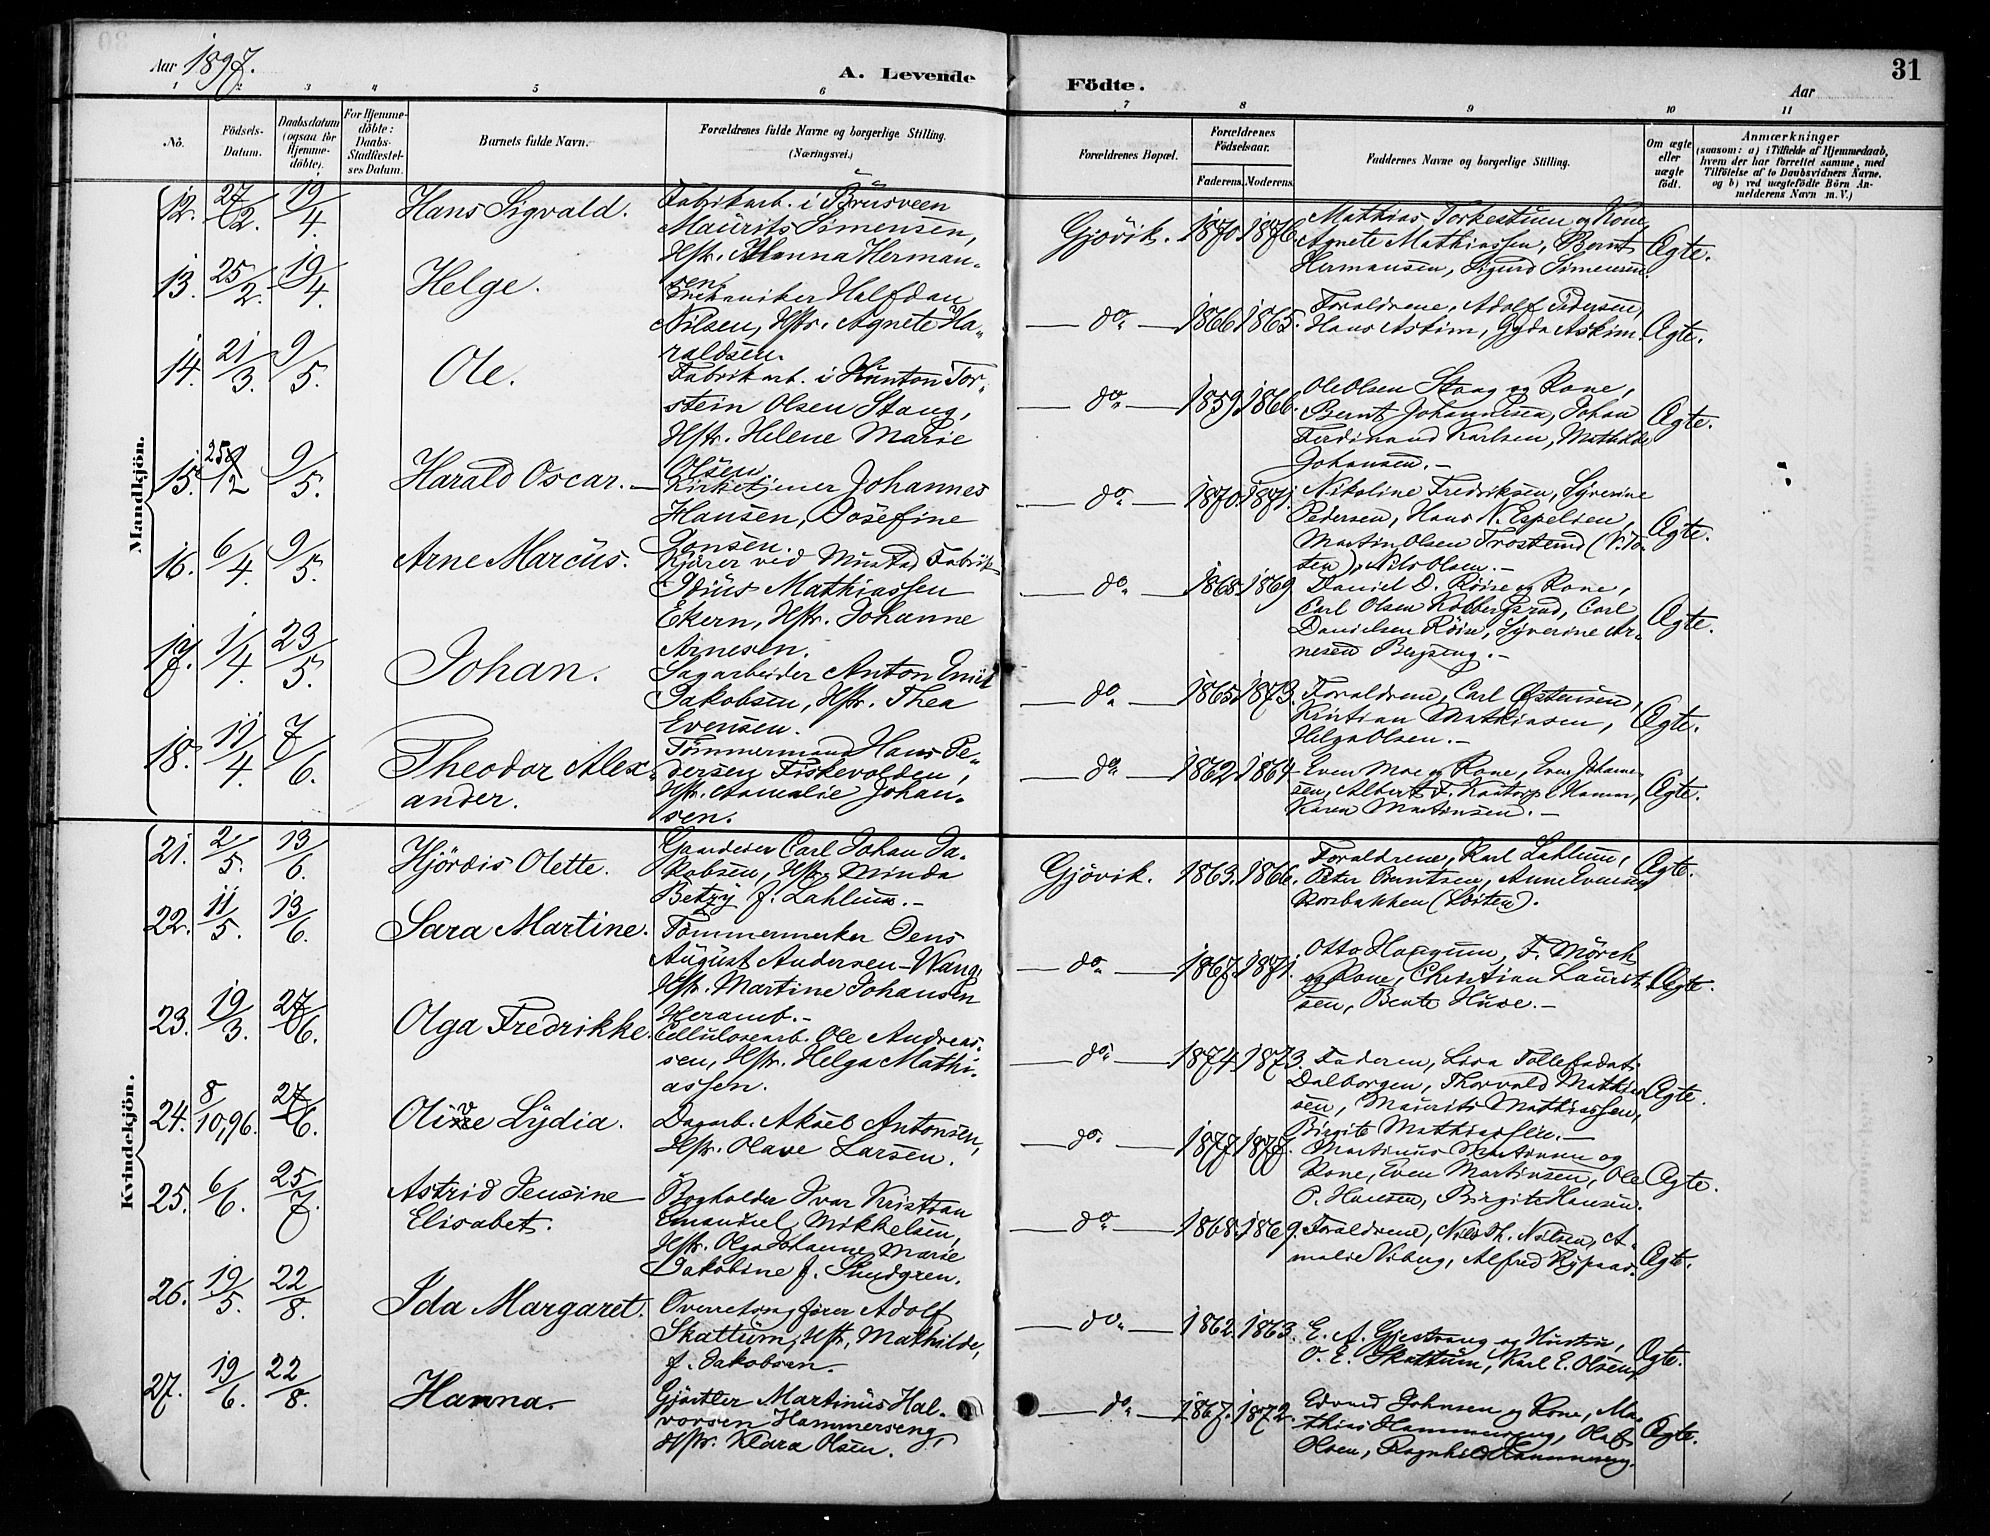 Aar 1897.
A. Levende
Födte.
31
Aar
1 2 3 4 5 6 7 8 9 10 11
No.
Födsels-Datum.
Daabsdatum (ogsaa for Hjemme-döbte).
For Hjemme-döbte: Daabs-Stadfæstel-ses Datum.
Barnets fulde Navn.
Forældrenes fulde Navne og borgerlige Stilling. (Næringsvei.)
Forældrenes Bopæl.
Forældrenes Födselsaar.
Faderens. Moderens.
Faddernes Navne og borgerlige Stilling.
Om ægte eller uægte födt.
Anmærkninger
(saasom: a) i Tilfælde af Hjemmedaab, hvem der har forrettet samme, med Tilföielse af to Daabsvidners Navne, og b) ved uægtefödte Börn An-melderens Navn m. V.)
Mandkjön.
12. 27/2. 19/4. Hans Sigvald.
Fabrikarb. i Brusveen
Maurits Simensen,
Hstr. Hanna Herman-
sen.
Gjövik. 1870. 1876.
Mathias Torkestuen og Kone,
Agnete Mathiassen, Bernt
Hermansen, Sigurd Simensen.
Ægte.
13. 25/2. 19/4. Helge.
Mekaniker Halfdan
Nilsen, Hstr. Agnete Ha-
raldsen.
do 1866 1865.
Forældrene, Adolf Pedersen,
Hans Askim, Gyda Askim.
Ægte.
14. 21/3. 9/5. Ole.
Fabrikarb. i Hunton Tor-
stein Olsen Stang,
Hstr. Helene Marie
Olsen.
do 1859. 1866.
Ole Olsen Stang og Kone,
Bernt Johannesen, Johan
Ferdinand Karlsen, Mathilde
Johansen.
Ægte.
15. 25/12 9/5. Harald Oscar.
Kirketjener Johannes
Hansen, Josefine
Jonsen.
do 1870. 1871.
Nikoline Fredriksen, Syverine
Pedersen, Hans N. Espelien,
Martin Olsen Trosterud (V. To-
ten), Nils Olsen.
Ægte.
16. 6/4. 9/5. Arne Marcus.
Kjörer ved Mustad Fabrik
Mathiassen
Ekern, Hstr. Johanne
Arnesen.
do 1865 1869
Daniel D. Röise og Kone,
Carl Olsen Kolbergsrud, Carl
Danielsen Röise, Syverine Ar-
nesen Bergseng.
Ægte.
17. 1/4. 23/5. Johan.
Sagarbeider Anton Emil
Jakobsen, Hstr. Thea
Evensen.
do 1865. 1873.
Forældrene, Carl Østensen,
Kristian Mathiasen,
Helga Olsen.
Ægte.
18. 11/4 7/6. Theodor Alex-
ander.
Tömmermand Hans Pe-
dersen Fiskevolden,
Hstr. Annalie Johan-
sen.
do 1862 1864
Even Moe og Kone, Even Johanne-
sen, Albert F. Kastorp Hamar,
Karen Martinsen.
Ægte.
Kvindekjön.
21. 2/5. 13/6. Hjördis Olette.
Gaardeier Carl Johan Ja-
kobsen, Hstr. Minda
Betzy f. Lahlum.
Gjövik. 1863. 1866.
Forældrene, Karl Lahlum,
Peter Berntsen, Anne Evensen
Korsbakken (Löiten).
Ægte.
22. 11/5. 13/6. Sara Martine.
Tömmermerker Jens
August Andersen-Wang,
Hstr. Martine Johansen
Heramb.
do 1867. 1871.
Otto Haugum, F. Mörch
og Kone, Christian Laurit-
sen, Beate Huse.
Ægte.
23. 19/3. 27/6. Olga Fredrikke.
Cellulosearb. Ole Andreas-
sen, Hstr. Helga Mathi-
assen.
do 1874. 1873.
Faderen, Lisa Tollefsdat.
Dalborgen, Thorvald Mathias-
sen, Maurits Mathiassen,
Birgite Mathiassen.
Ægte.
24. 8/10,96. 27/6. Olive Lydia.
Dagarb. Aksel Antonsen,
Hstr. Olave Larsen.
do 1877. 1878.
Martinus Martinsen og
Kone, Even Martinsen, Ole
P. Hansen, Birgite Hansen.
Ægte.
25. 6/6. 25/7. Astrid Jensine
Elisabet.
Bogholder Ivar Kristian
Emanuel Mikkelsen,
Hstr. Olga Johanne Marie
Jakobine f. Smedgren.
do 1868. 1869.
Forældrene, Nils Th. Nilsen, A-
malie Viberg, Alfred
Ægte.
26. 19/5. 22/8. Ida Margaret.
Adolf
Skattum, Hstr. Mathilde,
f. Jakobsen.
do 1862. 1863.
E. A. Gjestvang og Hustru,
O. E. Skattum, Karl E. Olsen
Ægte.
27. 19/6. 22/8. Hanna.
Gjörtler Martinus Hal-
vorsen Hammerseng,
Hstr. Klara Olsen.
do 1867. 1872.
Edvard Johnsen og Kone, Ma-
thias Hammerseng, Olaf
Olsen, Ragnhild Hammerseng.
Ægte.